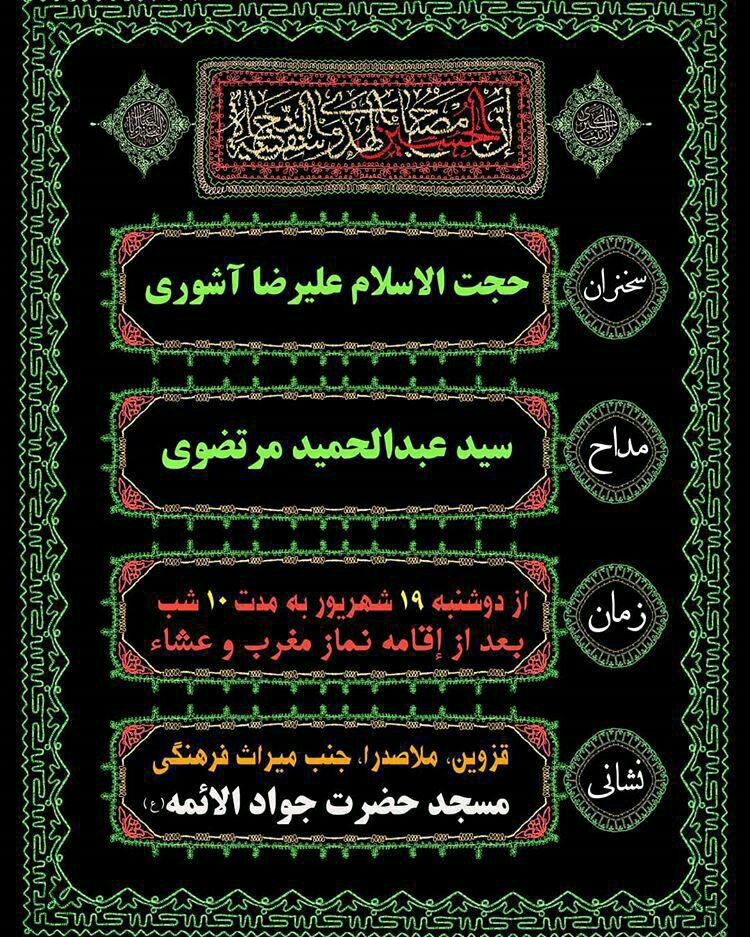 إن الحسین مصباح الهدی و سفینة النجاة
سخنران
حجت الاسلام علیرضا آشوری
مداح
سید عبدالحمید مرتضوی
زمان
از دوشنبه ۱۹ شهریور به مدت ۱۰ شب
بعد از إقامه نماز مغرب و عشاء
نشانی
قزوین، ملاصدرا، جنب میراث فرهنگی
مسجد حضرت جواد الائمه (ع)